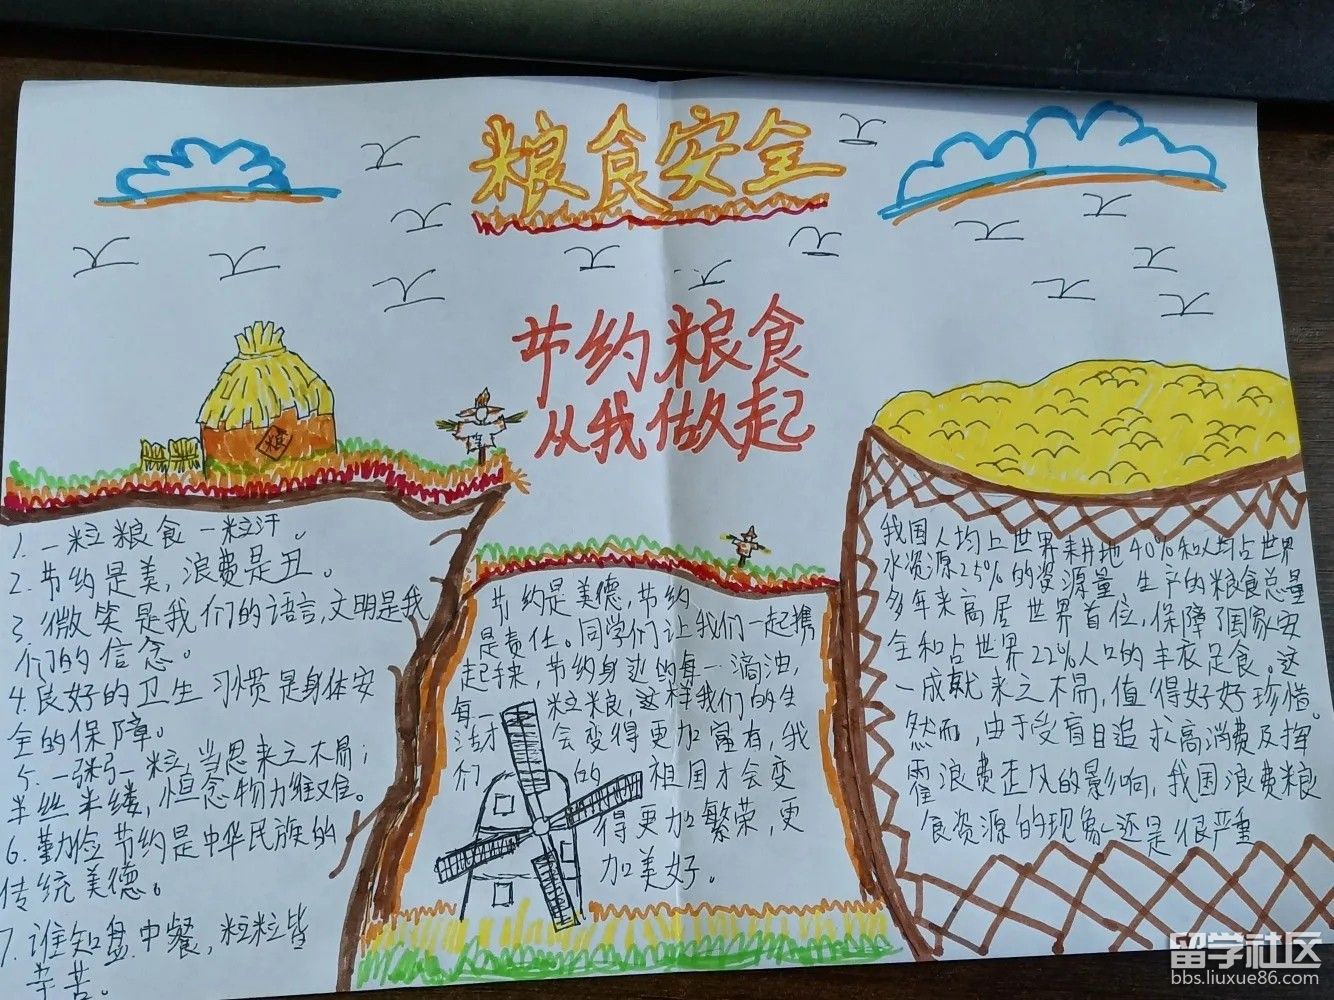 粮食安全
节约粮食
从我做起
粮
1. 一粒粮食一粒汗。
2. 节约是美，浪费是丑。
3. 微笑是我们的语言，文明是我
们的信念。
4. 良好的卫生习惯是身体安
全的保障。
5. 一粥一粒，当思来之不易；
半丝半缕，恒念物力维艰。
6. 勤俭节约是中华民族的
传统美德。
7. 谁知盘中餐，粒粒皆
辛苦。
节约是美德，节约
是责任。同学们让我们一起携
起手来，节约身边的每一滴油，
每一粒粮，这样我们的生
活才会变得更加富有，我
们的祖国才会变
得更加繁荣，更
加美好。
我国人均占世界耕地40%和人均占世界
水资源25%的资源量，生产的粮食总量
多年来高居世界首位，保障了国家安
全和占世界22%人口的丰衣足食。这
一成就来之不易，值得好好珍惜。
然而，由于受盲目追求高消费及挥
霍浪费歪风的影响，我国浪费粮
食资源的现象还是很严重
留学社区
bbs.liuxue86.com